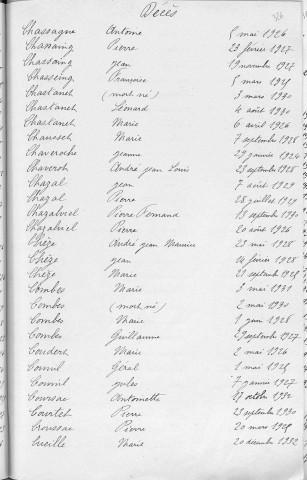 Décès
Chassagne Antoine 5 mai 1926
Chassaing Pierre 23 février 1927
Chassaing Jean 19 novembre 1927
Chasseing Françoise 5 mars 1928
Chastanet (mort né) 3 mars 1930
Chastanet Léonard 4 août 1930
Chastanet Marie 6 avril 1926
Chausset Marie 7 septembre 1928
Chaveroche Jeanne 29 janvier 1926
Chaveroch André Jean Louis 23 septembre 1928
Chazal Jean 7 août 1929
Chazal Pierre 28 juillet 1929
Chazalviel Pierre Fernand 18 septembre 1930
Chazalviel Pierre 20 août 1926
Chèze André Jean Maurice 23 mai 1928
Chèze Jean 14 février 1928
Chèze Marie 21 septembre 1928
Combes Marie 3 mai 1931
Combes (mort né) 2 mai 1930
Combes Marie 1 juin 1928
Combes Guillaume 29 septembre 1927
Coudert Marie 2 mai 1926
Counil Géral 1 mai 1928
Counil Jules 7 janvier 1927
Coursac Antoinette 17 octobre 1932
Courtet Pierre 23 septembre 1930
Croussac Pierre 20 mars 1929
Cueille Marie 20 décembre 1932